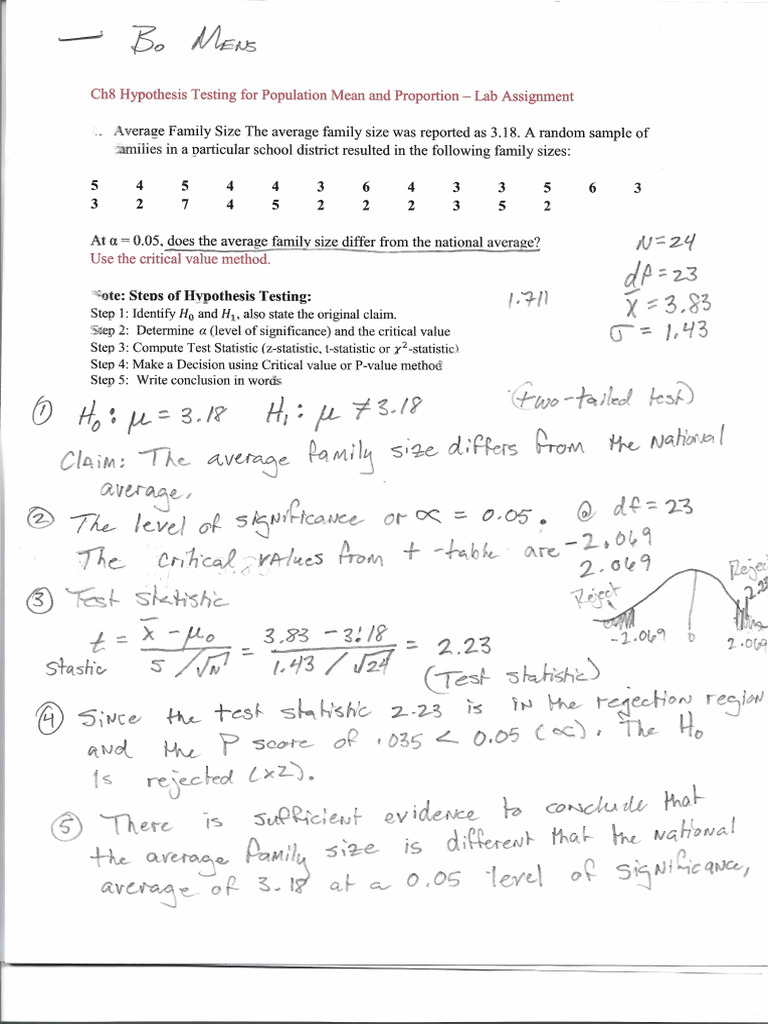 — Bo Mens
Ch8 Hypothesis Testing for Population Mean and Proportion – Lab Assignment
Average Family Size The average family size was reported as 3.18. A random sample of
amilies in a particular school district resulted in the following family sizes:
5 4 5 4 4 3 6 4 3 3 5 6 3
3 2 7 4 5 2 2 2 3 5 2
At α = 0.05, does the average family size differ from the national average?
Use the critical value method.
N = 24
df = 23
x̄ = 3.83
σ = 1.43
1.711
ote: Steps of Hypothesis Testing:
Step 1: Identify H₀ and H₁, also state the original claim.
Step 2: Determine α (level of significance) and the critical value
Step 3: Compute Test Statistic (z-statistic, t-statistic or χ²-statistic)
Step 4: Make a Decision using Critical value or P-value method
Step 5: Write conclusion in words
① H₀: μ = 3.18 H₁: μ ≠ 3.18 (two-tailed test)
Claim: The average family size differs from the National
average,
② The level of significance or ∝ = 0.05. @ df = 23
The critical values from t-table are -2.069
2.069
③ Test statistic
t = x̄ - μ₀ / S/√N = 3.83 - 3.18 / 1.43/√24 = 2.23
Stastic
(Test statistic)
Reject
Reject
2.23
-2.069 0 2.069
④ Since the test statistic 2.23 is in the rejection region
and the P score of .035 < 0.05 (∝). The H₀
Is rejected (x2).
⑤ There is sufficient evidence to conclude that
the average family size is different that the National
average of 3.18 at a 0.05 level of significance,